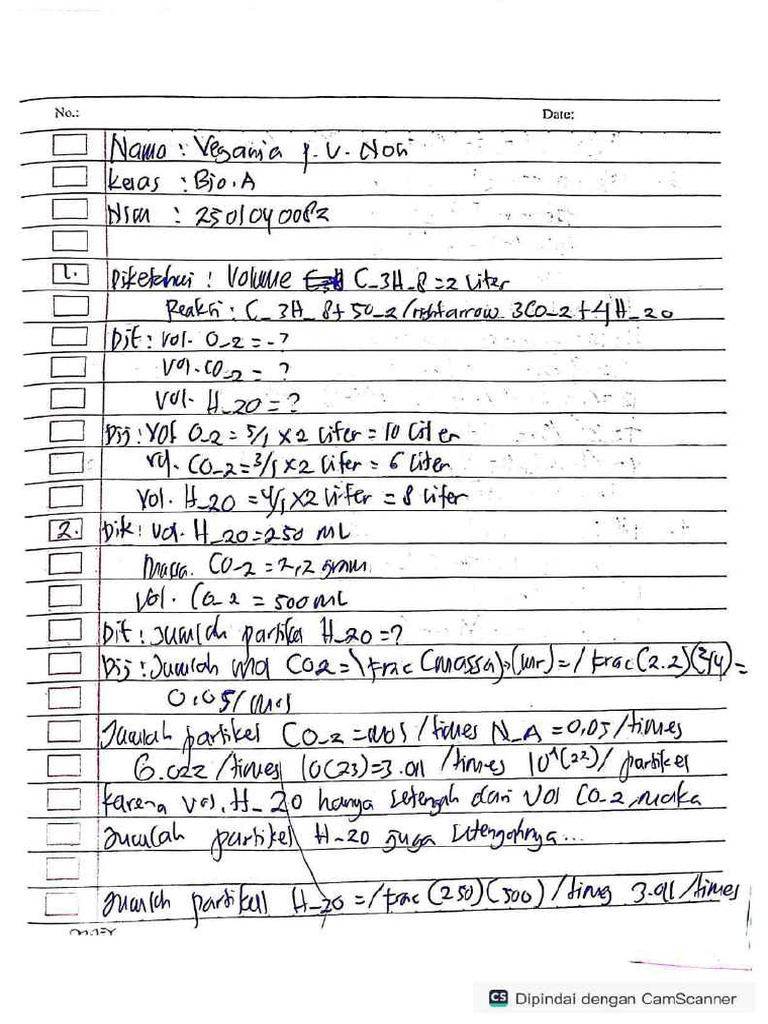 No.: Date:
Nama : Vegania J. V. Noh
Kelas : Bio. A
NIM : 2501040082
1. Diketahui : Volume C_3H_8 = 2 Liter
Reaksi : C_3H_8 + 5O_2 /rightarrow 3CO_2 + 4H_2O
Dit : Vol. O_2 = - ?
Vol. CO_2 = ?
Vol. H_2O = ?
Dij : Vol O_2 = 5/1 x 2 Liter = 10 Liter
Vol. CO_2 = 3/1 x 2 Liter = 6 Liter
Vol. H_2O = 4/1 x 2 Liter = 8 Liter
2. Dik : Vol. H_2O = 250 mL
Massa. CO_2 = 2,2 gram
Vol. CO_2 = 500 mL
Dit : Jumlah partikel H_2O = ?
Dij : Jumlah mol CO2 = \frac (massa) (Mr) = / frac (2.2) (44) =
0.05 / mol
Jumlah partikel CO_2 = mol / times N_A = 0,05 / times
6.022 / times 10(23) = 3.011 / times 10^(22) / partikel
Karena vol. H_2O hanya setengah dari vol CO_2, maka
Jumlah partikel H_2O juga setengahnya...
Jumlah partikel H_2O = / frac (250) (500) / times 3.011 / times
CS Dipindai dengan CamScanner